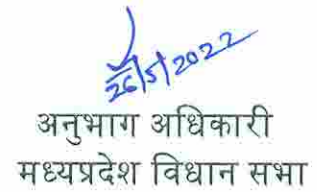 26/5/2022
अनुभाग अधिकारी
मध्यप्रदेश विधान सभा